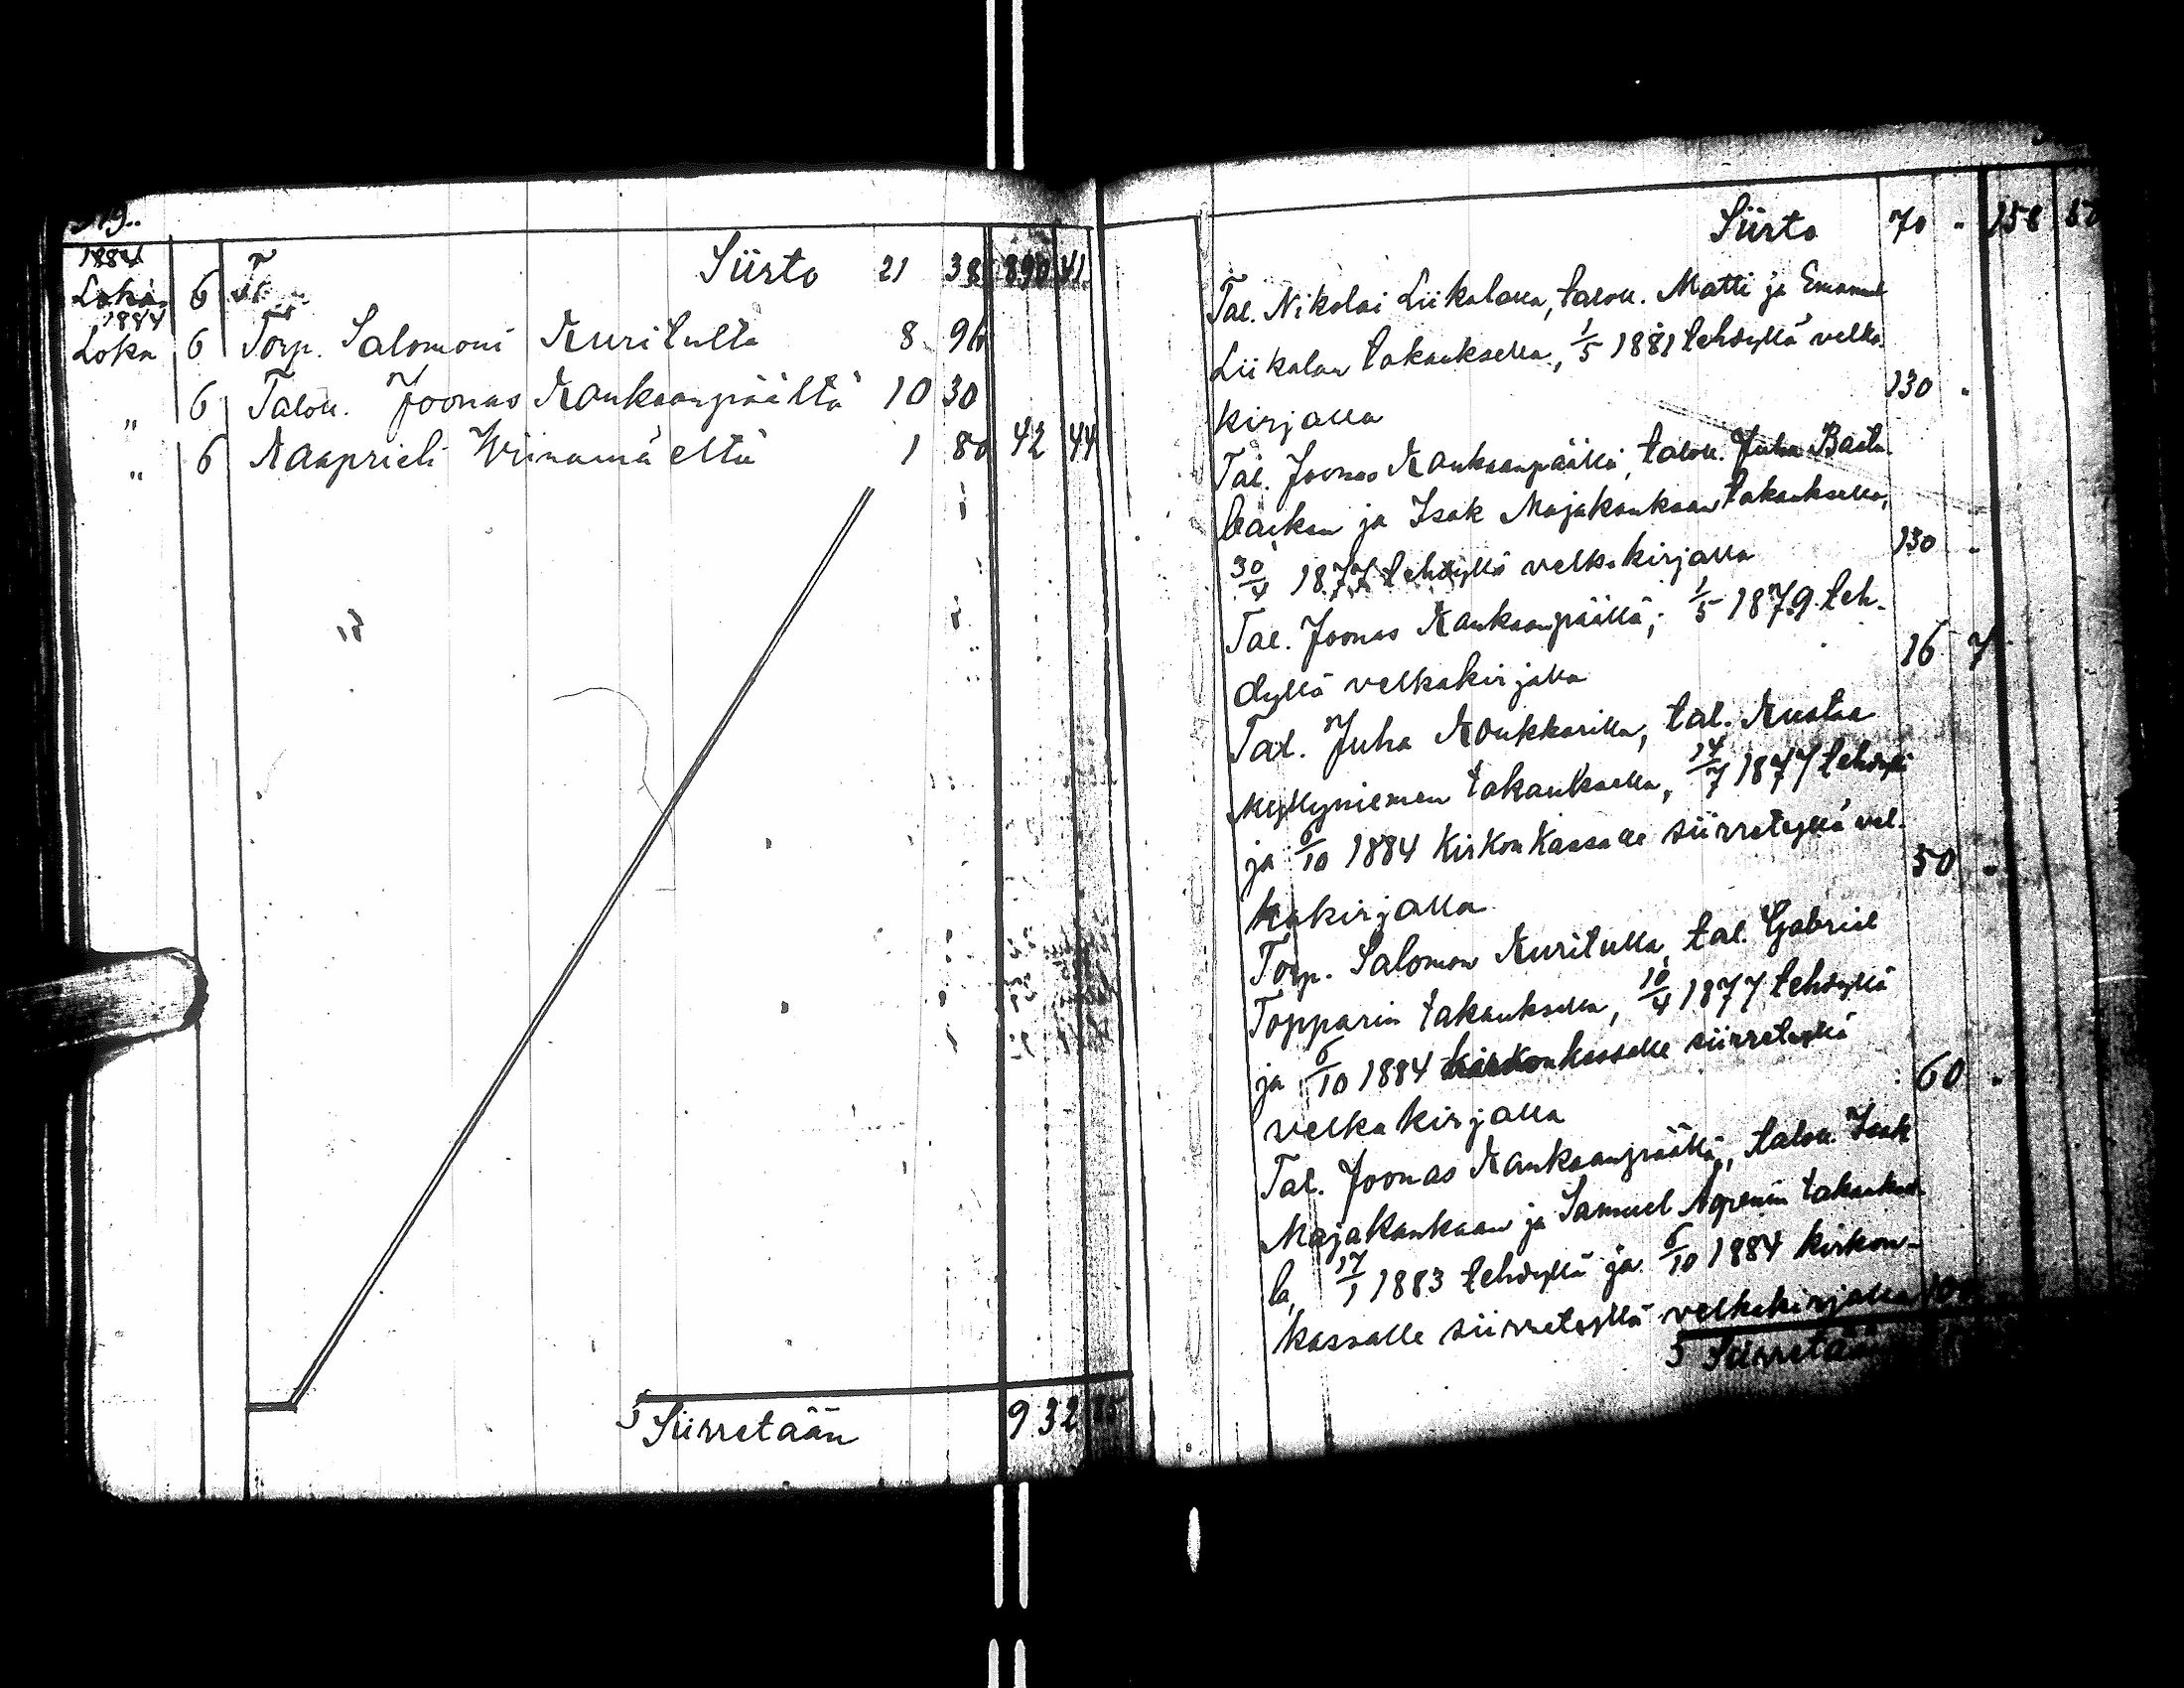 1884 Siirto 21 38 890 41.
Loka. 6
1884
Loka 6 Torp. Salomoni Kuritulta 8 96
" 6 Talon. Joonas Kankaanpäältä 10 30
" 6 Kaaprieli Wiinamäeltä 1 80 42 44
Siirretään 932 85
Siirto 70 - 158 82
Tal. Nikolai Liikalalla, talon. Matti ja Emanuel
Liikalan takauksella, 1/5 1881 tehdyllä velka
kirjalla 130 -
Tal. Joonas Kankaanpäällä, talon. Juha Bastu
backan ja Isak Majakankaan takauksella,
30/4 1877 tehdyllä velkakirjalla 130 -
Tal. Joonas Kankaanpäällä, 1/5 1879 teh-
dyllä velkakirjalla 16 7
Tal. Juha Koukkarilla, tal. Kustaa
Myllyniemen takauksella, 14/7 1877 tehdyllä
ja 6/10 1884 Kirkonkassalle siirretyllä vel-
kakirjalla 50 -
Torp. Salomon Kuritulla, tal. Gabriel
Topparin takauksella, 10/4 1877 tehdyllä
ja 6/10 1884 kirkonkassalle siirretyllä
velkakirjalla 60 -
Tal. Joonas Kankaanpäällä, talon. Isak
Majakankaan ja Samuel Ågrenin takauksel-
la, 17/1 1883 tehdyllä ja 6/10 1884 kirkon-
kassalle siirretyllä velkakirjalla 100
Siirretään